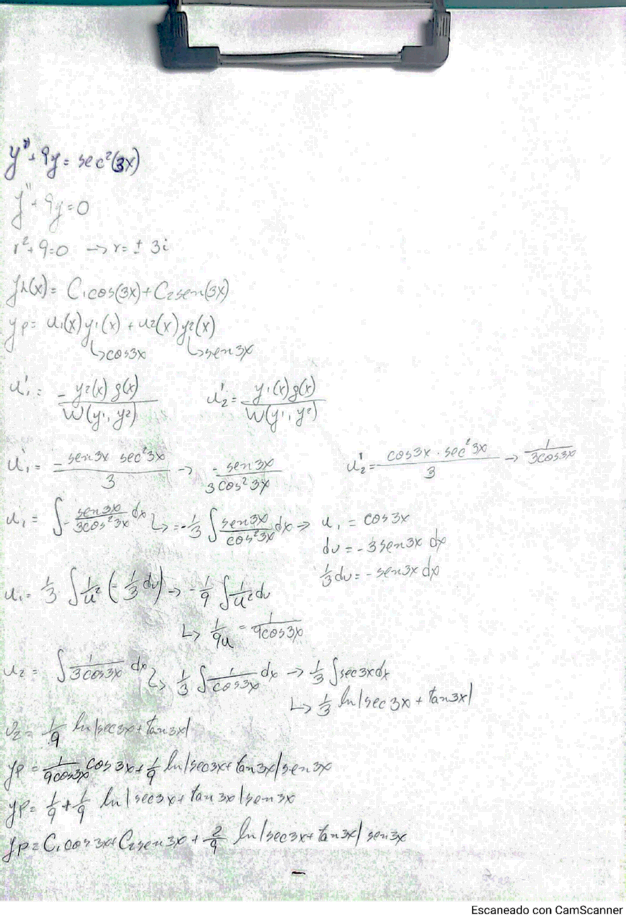 y'' + 9y = sec²(3x)
y'' + 9y = 0
r² + 9 = 0 → r = ± 3i
yh(x) = C₁cos(3x) + C₂sen(3x)
yp = u₁(x)y₁(x) + u₂(x)y₂(x)
↳cos3x ↳sen3x
u'₁ = -y₂(x) g(x) / W(y₁, y₂) u'₂ = y₁(x) g(x) / W(y₁, y₂)
u'₁ = -sen3x sec²3x / 3 → -sen3x / 3cos²3x u'₂ = cos3x · sec²3x / 3 → 1 / 3cos3x
u₁ = ∫ -sen3x / 3cos²3x dx ↳ -1/3 ∫ sen3x / cos²3x dx → u₁ = cos3x
du = -3sen3x dx
1/3 du = -sen3x dx
u₁ = 1/3 ∫ 1/u² (-1/3 du) → -1/9 ∫ 1/u² du
↳ 1/9u = 1/9cos3x
u₂ = ∫ 1/3cos3x dx ↳ 1/3 ∫ 1/cos3x dx → 1/3 ∫ sec3x dx
↳ 1/3 ln|sec3x + tan3x|
u₂ = 1/9 ln|sec3x + tan3x|
yp = 1/9cos3x cos3x + 1/9 ln|sec3x + tan3x| sen3x
yp = 1/9 + 1/9 ln|sec3x + tan3x| sen3x
yp = C₁cos3x + C₂sen3x + 2/9 ln|sec3x + tan3x| sen3x
Escaneado con CamScanner